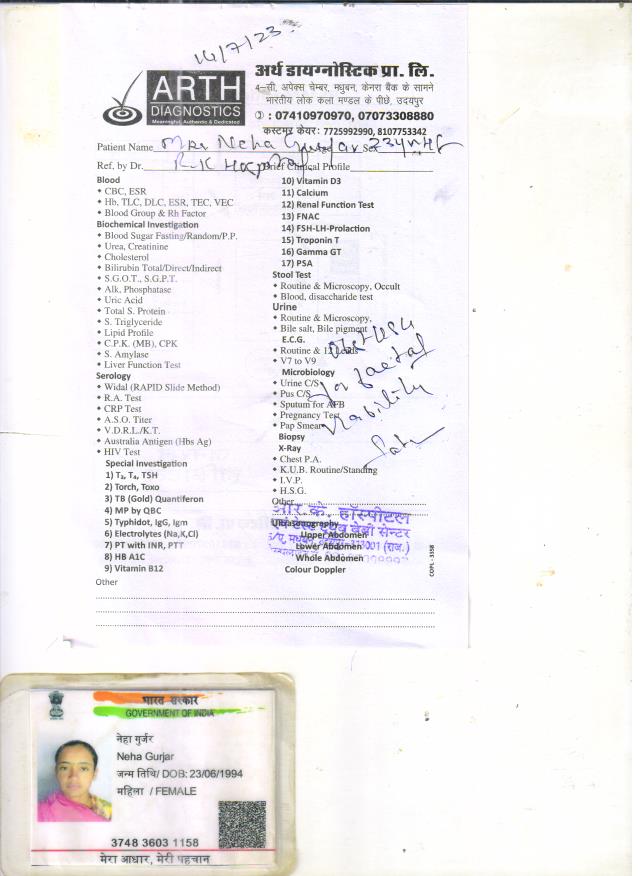 14/7/23
ARTH
DIAGNOSTICS
Meaningful, Authentic & Dedicated
अर्थ डायग्नोस्टिक प्रा. लि.
4–सी, अपेक्स चेम्बर, मधुबन, केनरा बैंक के सामने
भारतीय लोक कला मण्डल के पीछे, उदयपुर
: 07410970970, 07073308880
कस्टमर केयर: 7725992990, 8107753342
Patient Name Mrs Neha Gurjar Sex
Ref. by Dr. R.K Hospital Brief Clinical Profile
Blood
CBC, ESR
Hb, TLC, DLC, ESR, TEC, VEC
Blood Group & Rh Factor
Biochemical Investigation
Blood Sugar Fasting/Random/P.P.
Urea, Creatinine
Cholesterol
Bilirubin Total/Direct/Indirect
S.G.O.T., S.G.P.T.
Alk, Phosphatase
Uric Acid
Total S. Protein
S. Triglyceride
Lipid Profile
C.P.K. (MB), CPK
S. Amylase
Liver Function Test
Serology
Widal (RAPID Slide Method)
R.A. Test
CRP Test
A.S.O. Titer
V.D.R.L./K.T.
Australia Antigen (Hbs Ag)
HIV Test
Special Investigation
1) T3, T4, TSH
2) Torch, Toxo
3) TB (Gold) Quantiferon
4) MP by QBC
5) Typhidot, IgG, Igm
6) Electrolytes (Na,K,Cl)
7) PT with INR, PTT
8) HB A1C
9) Vitamin B12
Other
10) Vitamin D3
11) Calcium
12) Renal Function Test
13) FNAC
14) FSH-LH-Prolaction
15) Troponin T
16) Gamma GT
17) PSA
Stool Test
Routine & Microscopy, Occult
Blood, disaccharide test
Urine
Routine & Microscopy,
Bile salt, Bile pigment
E.C.G.
Routine & 12 Leads
V7 to V9
Microbiology
Urine C/S
Pus C/S
Sputum for AFB
Pregnancy Test
Pap Smear
Biopsy
X-Ray
Chest P.A.
K.U.B. Routine/Standing
I.V.P.
H.S.G.
Other
Ultrasonography
Upper Abdomen
Lower Abdomen
Whole Abdomen
Colour Doppler
USG
for faetal
viability
आर.के. हॉस्पीटल
एवं टेस्ट ट्यूब बेबी सेन्टर
मधुबन, 313001 (राज.)
COPL-3558
भारत सरकार
GOVERNMENT OF INDIA
नेहा गुर्जर
Neha Gurjar
जन्म तिथि/ DOB: 23/06/1994
महिला / FEMALE
3748 3603 1158
मेरा आधार, मेरी पहचान